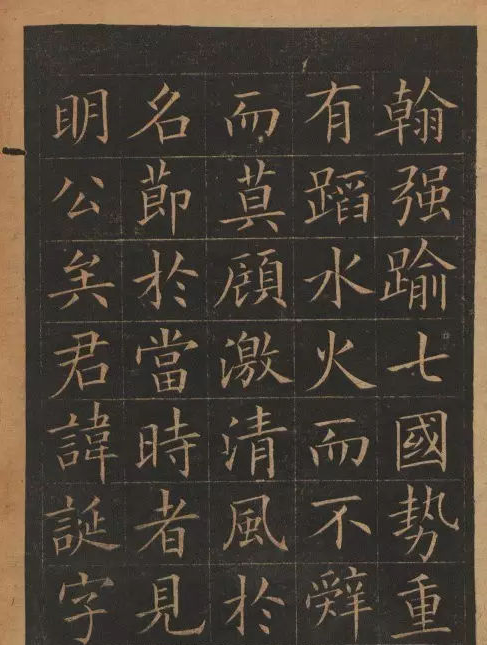 翰强踰七國勢重
有蹈水火而不辭
而莫顧激清風於
名節於當時者見
明公矣君諱誕字